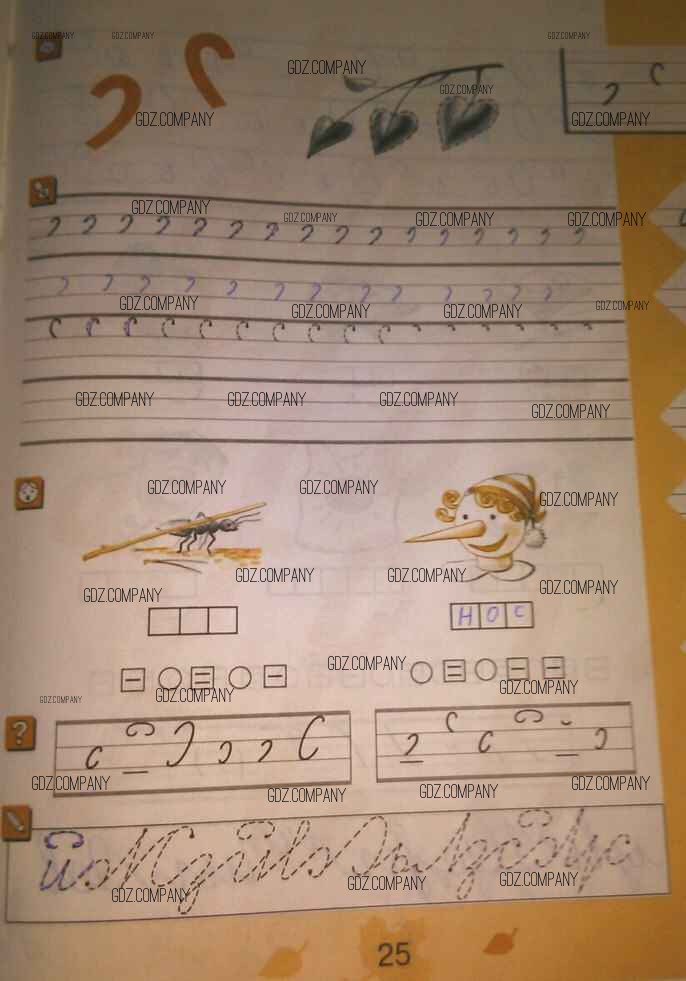 GDZ.COMPANY GDZ.COMPANY GDZ.COMPANY
GDZ.COMPANY
GDZ.COMPANY
GDZ.COMPANY GDZ.COMPANY
GDZ.COMPANY
GDZ.COMPANY GDZ.COMPANY GDZ.COMPANY
GDZ.COMPANY GDZ.COMPANY GDZ.COMPANY GDZ.COMPANY
GDZ.COMPANY GDZ.COMPANY GDZ.COMPANY
GDZ.COMPANY
GDZ.COMPANY GDZ.COMPANY
GDZ.COMPANY
GDZ.COMPANY GDZ.COMPANY
GDZ.COMPANY GDZ.COMPANY
н о с
GDZ.COMPANY
GDZ.COMPANY GDZ.COMPANY GDZ.COMPANY
?
GDZ.COMPANY GDZ.COMPANY
GDZ.COMPANY GDZ.COMPANY
GDZ.COMPANY GDZ.COMPANY GDZ.COMPANY
25